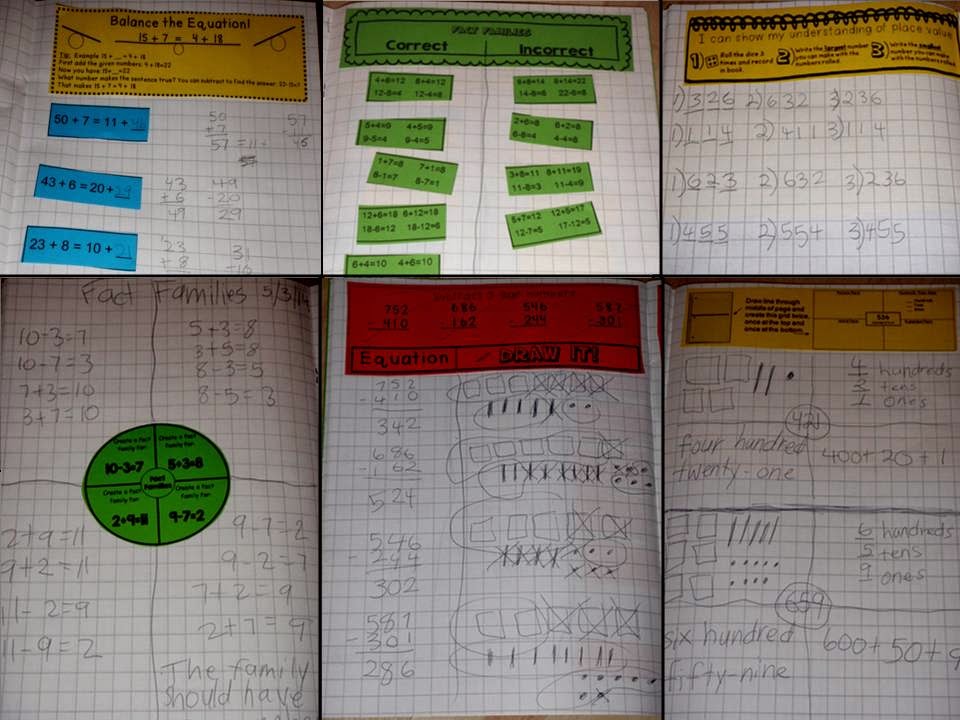 Balance the Equation!
15 + 7 = 4 + 18
First add the given numbers: 4 + 18=22
Now you have: 15+__=22
What number makes the sentence true? You can subtract to find the answer: 22-15=7
That makes 15 + 7 = 4 + 18
50 + 7 = 11 + 46
50
+7
57 = 11
57
46
43 + 6 = 20 + 29
43
+6
49
49
-20
29
23 + 8 = 10 + 21
23
+8
31
-10
FACT FAMILIES
Correct
Incorrect
4+8=12 8+4=12
12-8=4 12-4=8
5+4=9 4+5=9
9-5=4 9-4=5
1+7=8 7+1=8
8-1=7 8-7=1
12+6=18 6+12=18
18-6=12 18-12=6
6+4=10 4+6=10
6+8=14 8+14=22
14-8=6 22-8=8
2+6=8 6+2=8
6-8=4 4-4=8
3+8=11 8+11=19
11-8=3 11-4=9
5+7=12 12+5=17
12-7=5 17-12=5
I can show my understanding of place value
1) Roll the dice 3 times and record in book.
2) Write the largest number you can with the numbers rolled.
3) Write the smallest number you can make with the numbers rolled.
1) 326 2) 632 3) 236
1) 114 2) 411 3) 114
1) 623 2) 632 3) 236
1) 455 2) 554 3) 455
Fact Families
10-3=7
10-7=3
7+3=10
3+7=10
5+3=8
3+5=8
8-3=5
8-5=3
Create a fact family for:
10-3=7
Create a fact family for:
5+3=8
Fact Families
Create a fact family for:
2+9=11
Create a fact family for:
9-7=2
2+9=11
9+2=11
11-2=9
11-9=2
9-7=2
9-2=7
7+2=9
2+7=9
The family
should have
Subtract 3 digit numbers
752 686 546 587
-410 -162 -244 -301
Equation
DRAW IT!
752
-410
342
686
-162
524
546
-244
302
587
-301
286
Draw line through
middle of page and
create this grid twice,
once at the top and
once at the bottom.
536
4 hundreds
2 tens
1 ones
421
four hundred
twenty-one
400+20+1
6 hundreds
5 tens
9 ones
659
six hundred
fifty-nine
600+50+9